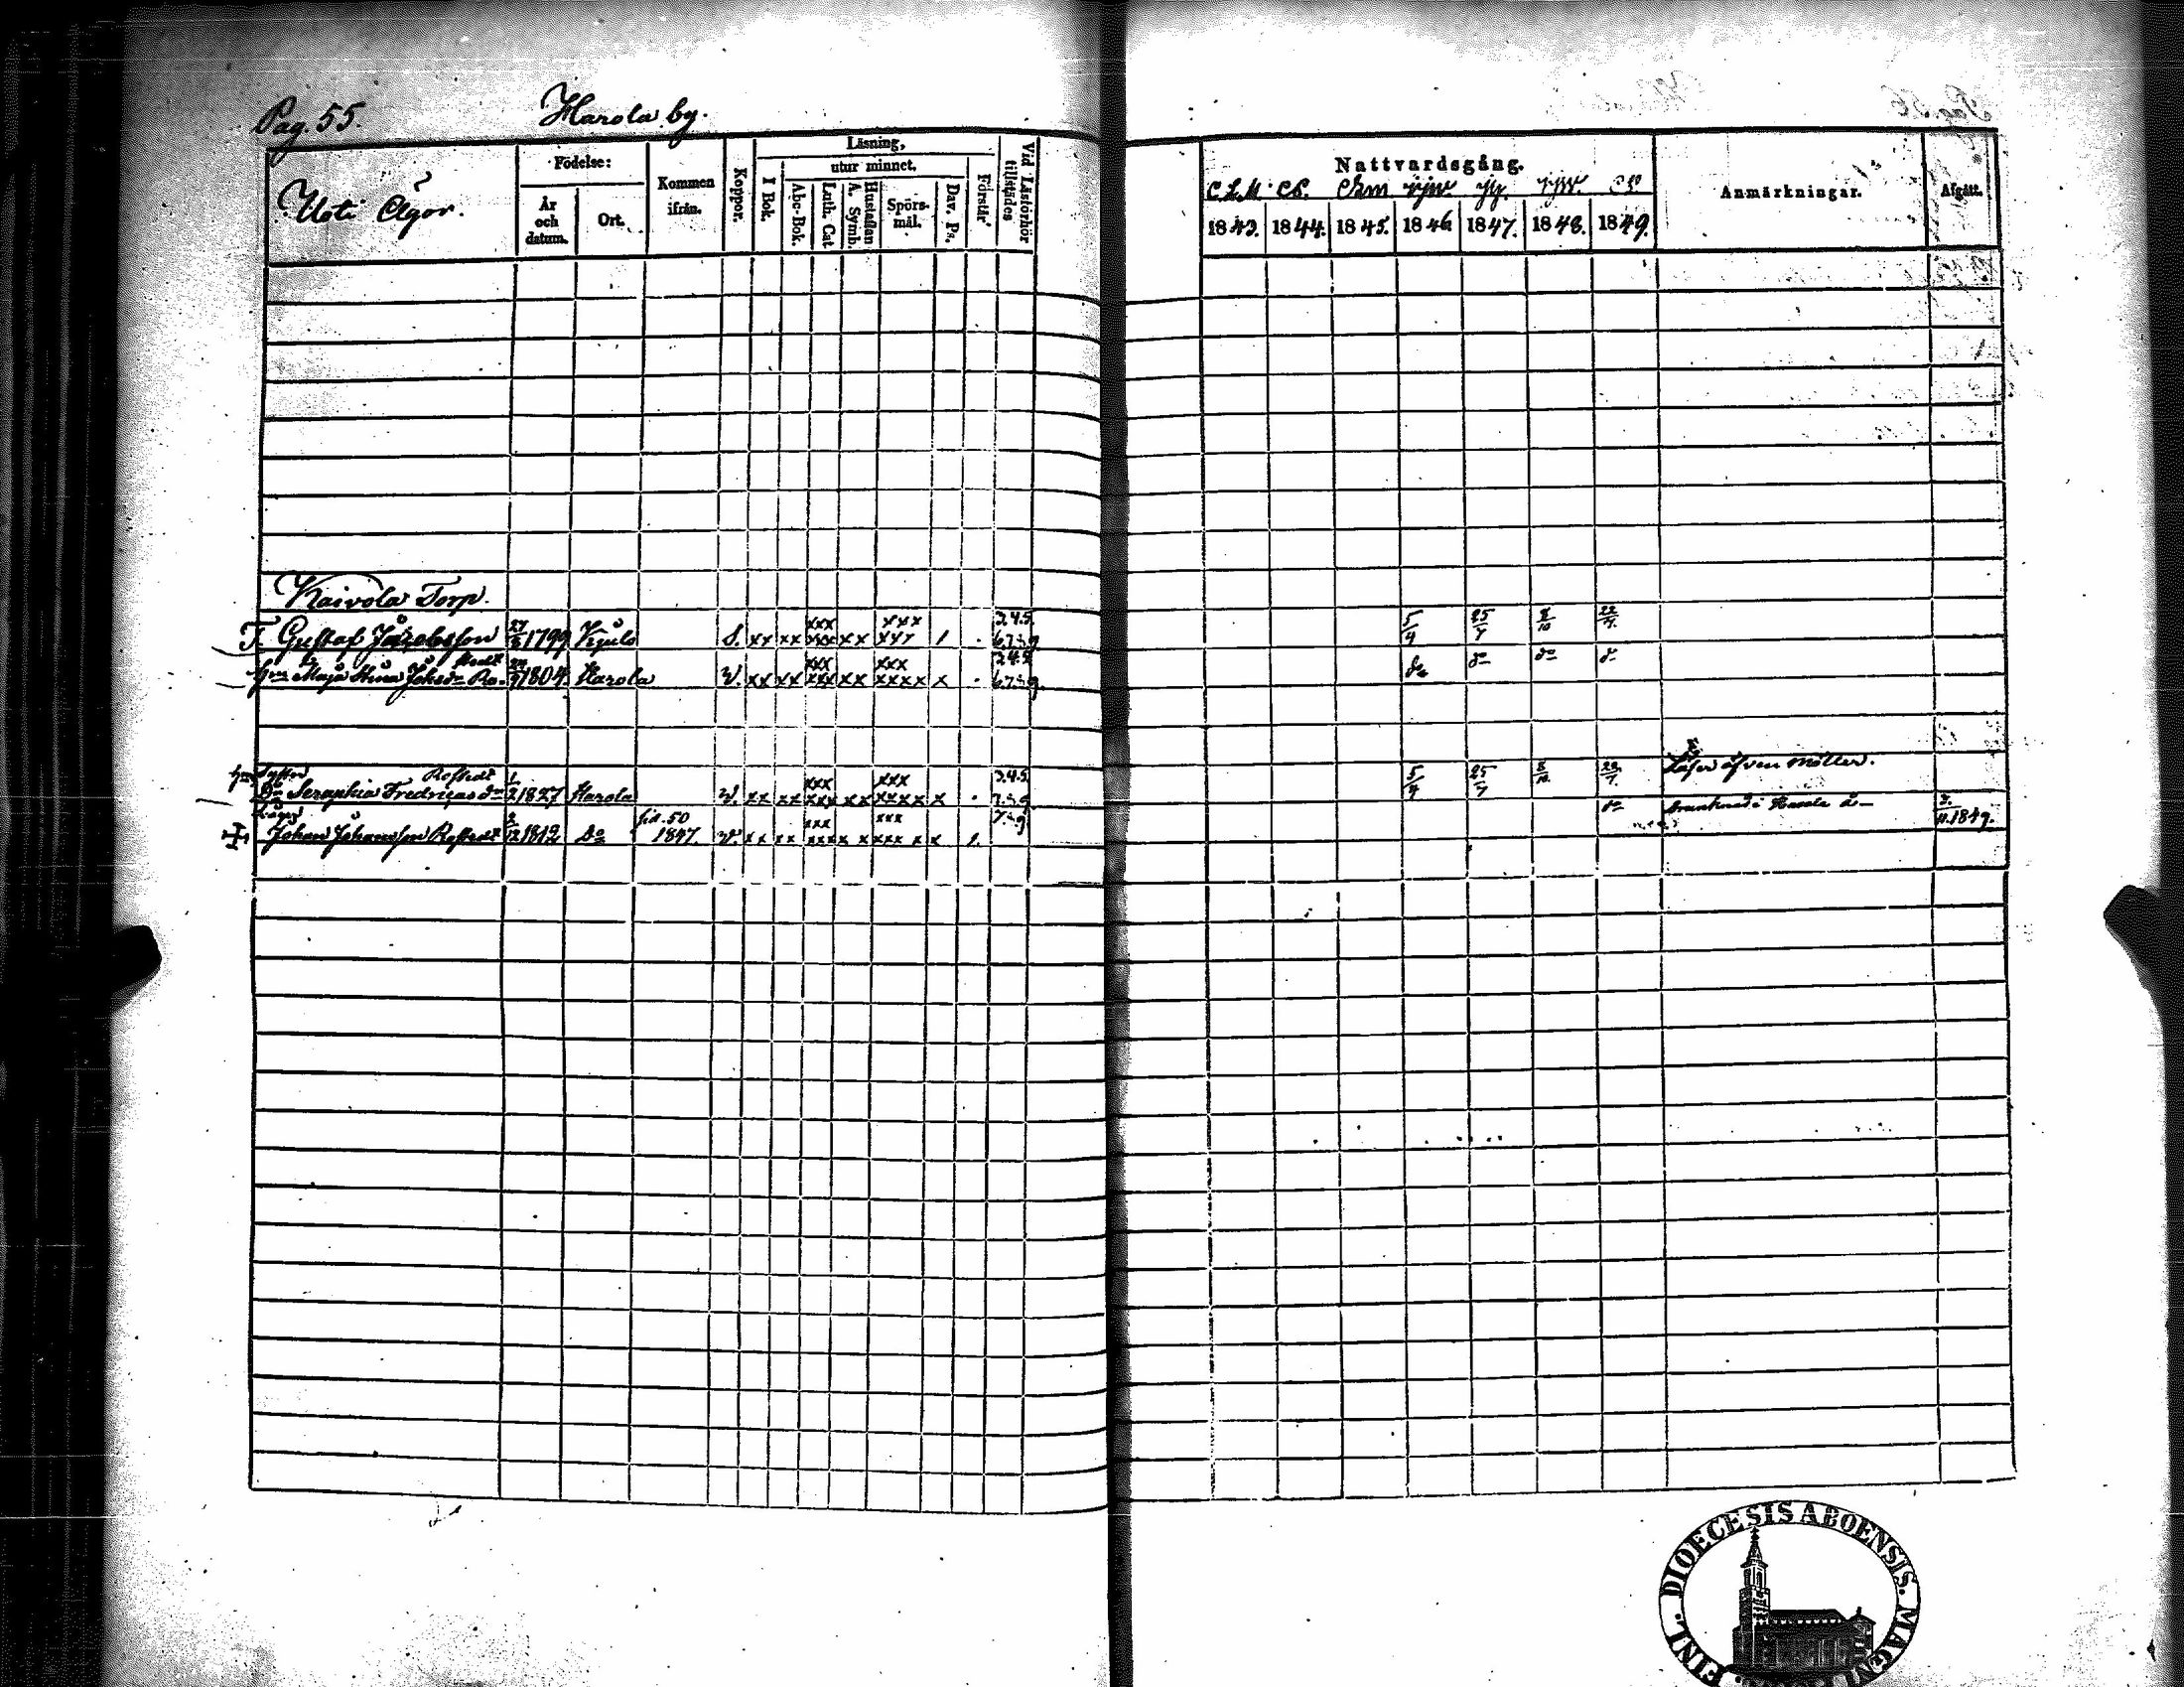 Pag. 55. Harola by.
Uoti Ägor.
Födelse:
År och datum.
Ort.
Kommen ifrån.
Koppor.
Läsning,
I Bok.
utur minnet.
Abc-Bok.
Luth. Cat.
Hustaflan A. Symb.
Spörsmål.
Dav. Ps.
Förstår
Vid Läsförhör tillstädes
Nattvardsgång.
1843. 1844. 1845. 1846. 1847. 1848. 1849.
Anmärkningar.
Afgått.
Kaivola Torp.
T. Gustaf Jacobsson 27/8 1799 S. xx xx xxx xxx xx xxx xxx 1 3.4.5. 6.7.8.9 5/4 25/4 8/10 22/7
Maja Stina Johsdr 1804. Harola V. xx xx xxx xxx xx xxx xxxx x 3.4.5. 6.7.8.9. do do do do
Seraphia Fredricasdr 1827 Harola V. xx xx xxx xxx xx xxx xxxxx x 3.4.5. 7.8.9. 5/4 25/4 8/10 22/7 Läser äfven möller.
Johan Johansson 1812 Do sid. 50 1847. V. xx xx xxx xxx x xxx xxx x x 1. 7.8.9 do 1849.
FINL. DIOECESIS ABOENSIS. MAGNI